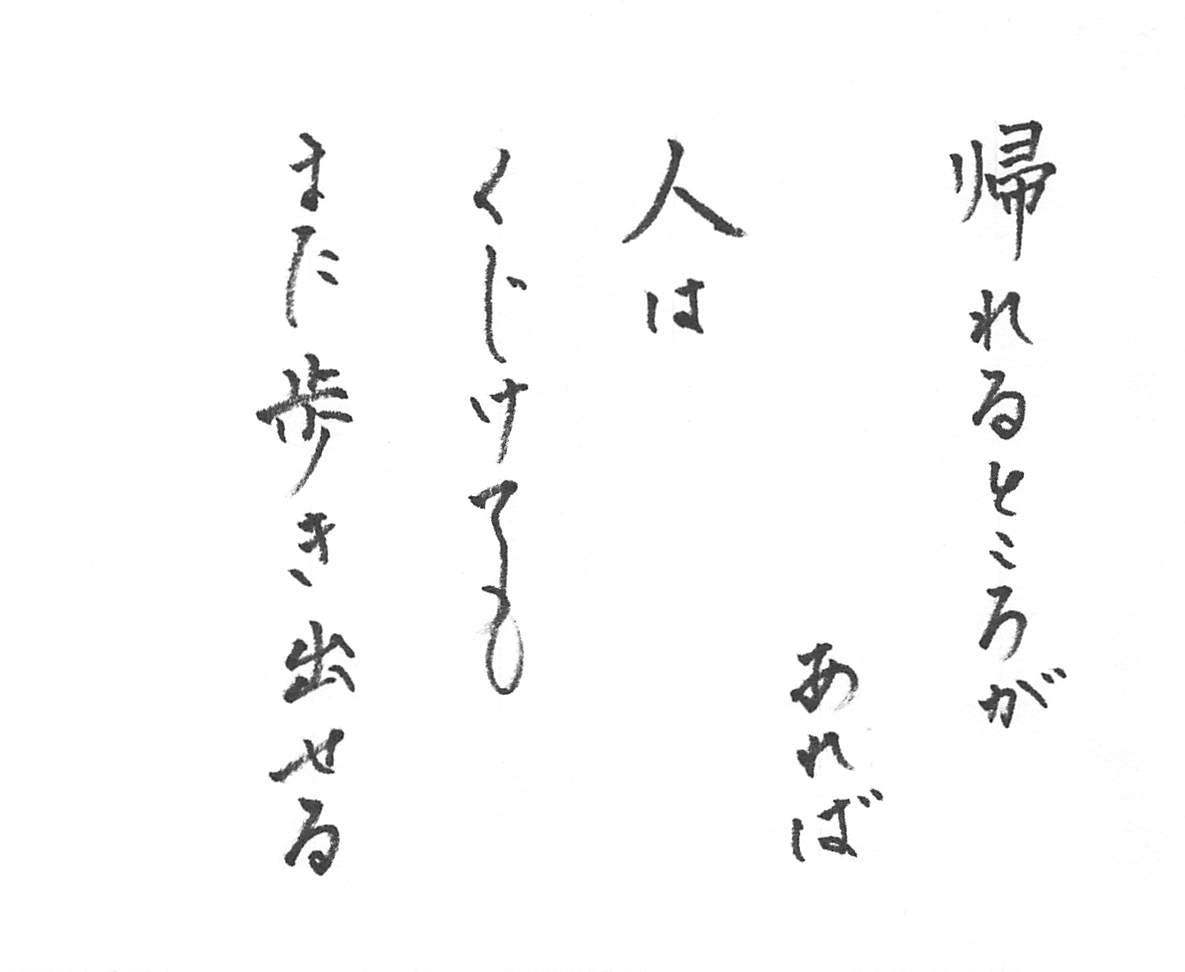 帰れるところが
あれば
人は
くじけても
また歩き出せる